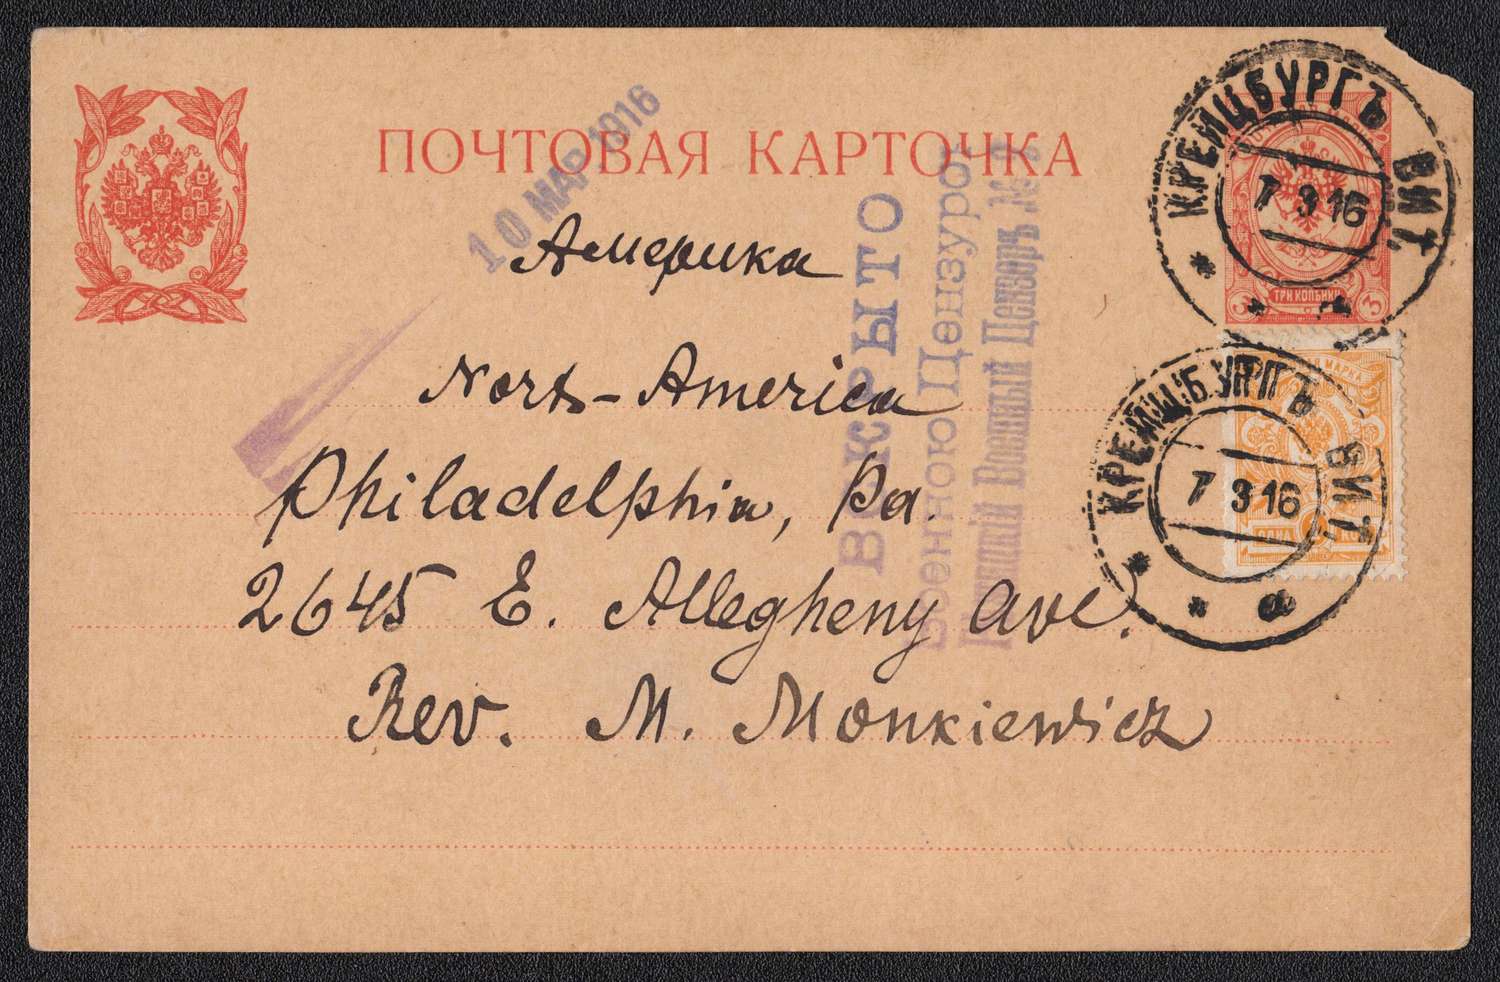 ПОЧТОВАЯ КАРТОЧКА
10 МАР 1916
Америка
North-America
Philadelphia, Pa.
2645 E. Allegheny Ave.
Rev. M. Monkiewicz
ВСКРЫТО
Военною Цензурой
Военный Цензоръ №
КРЕЙЦБУРГЪ ВИТ.
7 3 16
3 ТРИ КОПѢЙКИ 3
КРЕЙЦБУРГЪ ВИТ.
7 3 16
МАРКА
ОДНА КОП